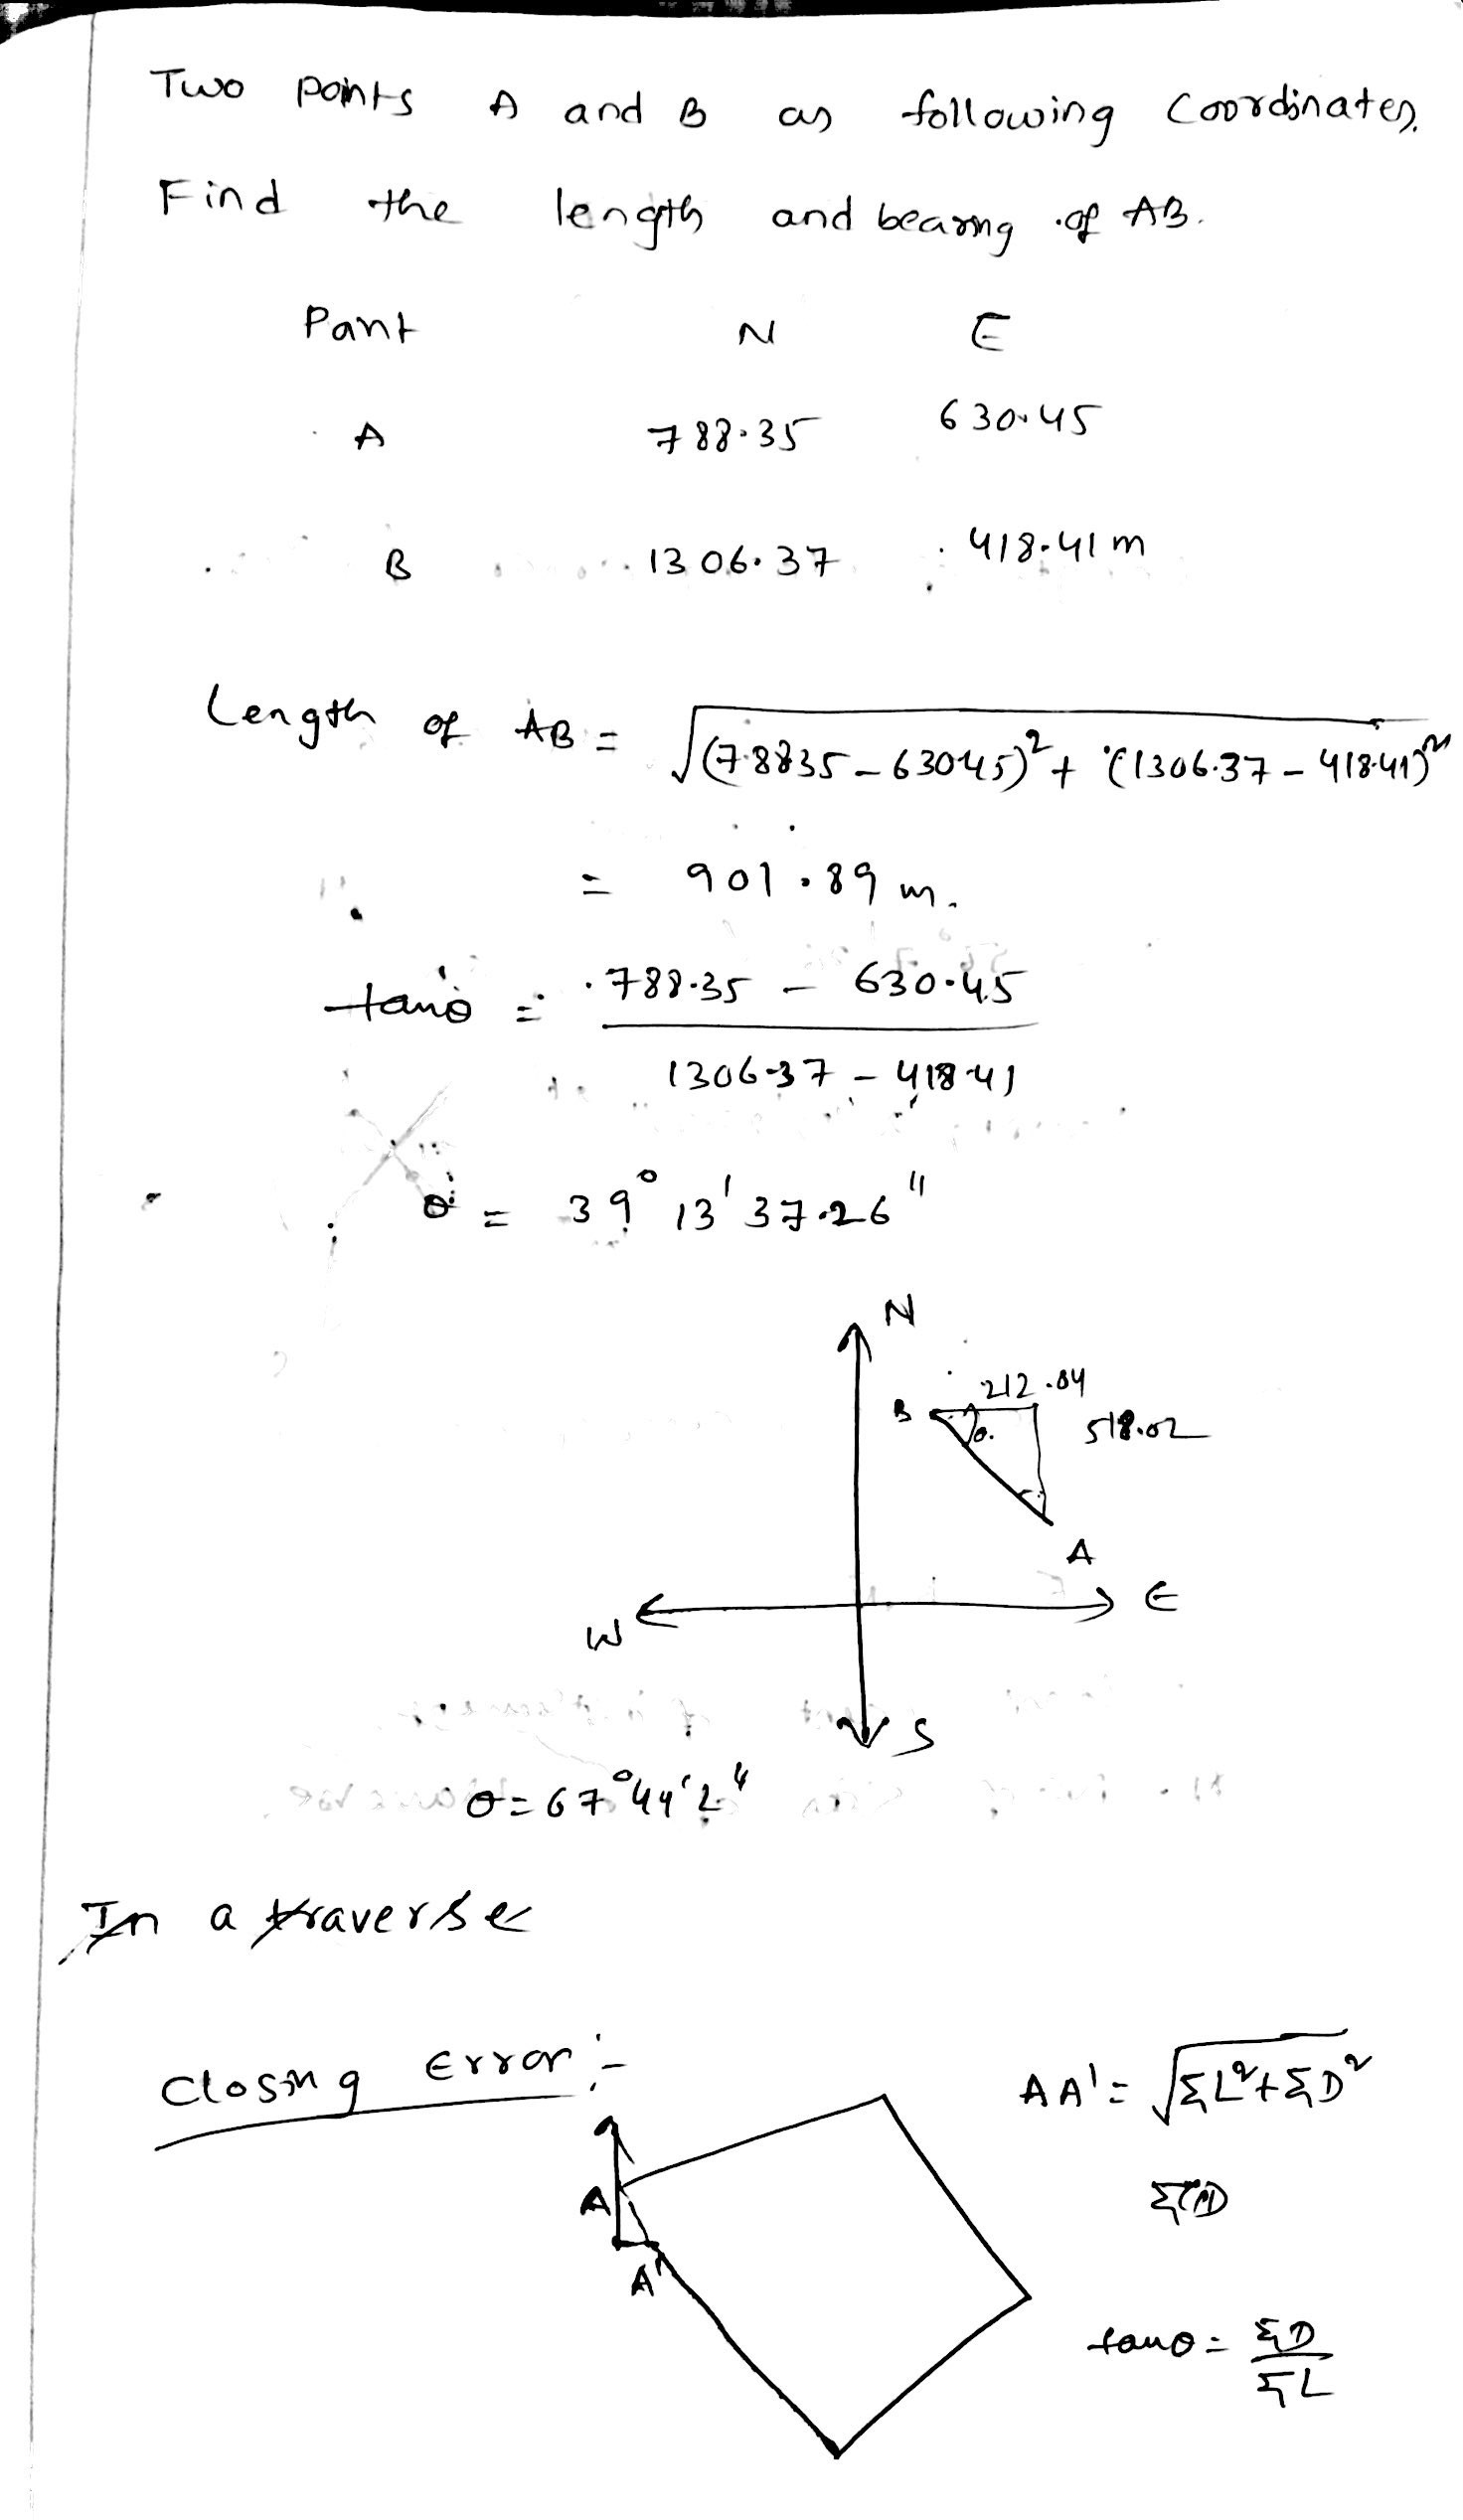 Two points A and B as following Coordinates.
Find the length and bearing of AB.
Point N E
A 788.35 630.45
B 1306.37 418.41 m
Length of AB = √(788.35 - 630.45)² + (1306.37 - 418.41)²
= 901.89 m.
tanθ = 788.35 - 630.45
1306.37 - 418.41
θ = 39° 13' 37.26"
N
212.04
B θ. 518.02
A
W E
S
θ = 67°44'2"
In a traverse
Closing Error :-
AA' = √ΣL²+ΣD²
A
ΣD
A'
tanθ = ΣD
ΣL